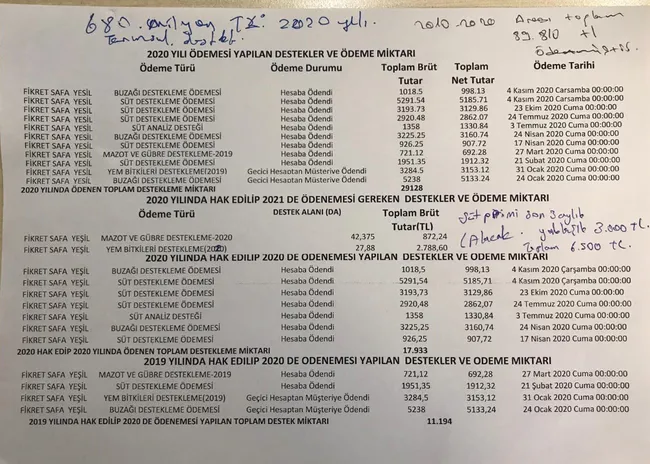 680. milyon TL. 2020 yılı.
Tarımsal destek.
2010-2020 Arası toplam
89.810 tl
ödenmiştir.
2020 YILI ÖDEMESİ YAPILAN DESTEKLER VE ÖDEME MİKTARI
Ödeme Türü Ödeme Durumu Toplam Brüt Tutar Toplam Net Tutar Ödeme Tarihi
FİKRET SAFA YEŞİL BUZAĞI DESTEKLEME ÖDEMESİ Hesaba Ödendi 1018.5 998.13 4 Kasım 2020 Carsamba 00:00:00
FİKRET SAFA YEŞİL SÜT DESTEKLEME ÖDEMESİ Hesaba Ödendi 5291.54 5185.71 4 Kasım 2020 Carsamba 00:00:00
FİKRET SAFA YEŞİL SÜT DESTEKLEME ÖDEMESİ Hesaba Ödendi 3193.73 3129.86 23 Ekim 2020 Cuma 00:00:00
FİKRET SAFA YEŞİL SÜT DESTEKLEME ÖDEMESİ Hesaba Ödendi 2920.48 2862.07 24 Temmuz 2020 Cuma 00:00:00
FİKRET SAFA YEŞİL SÜT ANALİZ DESTEĞİ Hesaba Ödendi 1358 1330,84 3 Temmuz 2020 Cuma 00:00:00
FİKRET SAFA YEŞİL BUZAĞI DESTEKLEME ÖDEMESİ Hesaba Ödendi 3225.25 3160.74 24 Nisan 2020 Cuma 00:00:00
FİKRET SAFA YEŞİL SÜT DESTEKLEME ÖDEMESİ Hesaba Ödendi 926.25 907.72 17 Nisan 2020 Cuma 00:00:00
FİKRET SAFA YEŞİL MAZOT VE GÜBRE DESTEKLEME-2019 Hesaba Ödendi 721.12 692.28 27 Mart 2020 Cuma 00:00:00
FİKRET SAFA YEŞİL SÜT DESTEKLEME ÖDEMESİ Hesaba Ödendi 1951.35 1912.32 21 Şubat 2020 Cuma 00:00:00
FİKRET SAFA YEŞİL YEM BİTKİLERİ DESTEKLEME(2019) Geçici Hesaptan Müsteriye Ödendi 3284.5 3153.12 31 Ocak 2020 Cuma 00:00:00
FİKRET SAFA YEŞİL BUZAĞI DESTEKLEME ÖDEMESİ Geçici Hesaptan Müsteriye Ödendi 5238 5133.24 24 Ocak 2020 Cuma 00:00:00
2020 YILINDA ÖDENEN TOPLAM DESTEKLEME MİKTARI 29128
2020 YILINDA HAK EDİLİP 2021 DE ÖDENMESİ GEREKEN DESTEKLER VE ÖDEME MİKTARI
Ödeme Türü DESTEK ALANI (DA) Toplam Brüt Tutar(TL)
Süt primi son 3 aylık
(Alacak. yaklaşık 3.000 TL.
Toplam 6.500 TL.
FİKRET SAFA YEŞİL MAZOT VE GÜBRE DESTEKLEME-2020 42,375 872,24
FİKRET SAFA YEŞİL YEM BİTKİLERİ DESTEKLEME(2020) 27,88 2.788,60
2020 YILINDA HAK EDİLİP 2020 DE ÖDENEMESİ YAPILAN DESTEKLER VE ÖDEME MİKTARI
FİKRET SAFA YEŞİL BUZAĞI DESTEKLEME ÖDEMESİ Hesaba Ödendi 1018,5 998,13 4 Kasım 2020 Çarşamba 00:00:00
FİKRET SAFA YEŞİL SÜT DESTEKLEME ÖDEMESİ Hesaba Ödendi 5291,54 5185,71 4 Kasım 2020 Çarşamba 00:00:00
FİKRET SAFA YEŞİL SÜT DESTEKLEME ÖDEMESİ Hesaba Ödendi 3193,73 3129,86 23 Ekim 2020 Cuma 00:00:00
FİKRET SAFA YEŞİL SÜT DESTEKLEME ÖDEMESİ Hesaba Ödendi 2920,48 2862,07 24 Temmuz 2020 Cuma 00:00:00
FİKRET SAFA YEŞİL SÜT ANALİZ DESTEĞİ Hesaba Ödendi 1358 1330,84 3 Temmuz 2020 Cuma 00:00:00
FİKRET SAFA YEŞİL BUZAĞI DESTEKLEME ÖDEMESİ Hesaba Ödendi 3225,25 3160,74 24 Nisan 2020 Cuma 00:00:00
FİKRET SAFA YEŞİL SÜT DESTEKLEME ÖDEMESİ Hesaba Ödendi 926,25 907,72 17 Nisan 2020 Cuma 00:00:00
2020 HAK EDİP 2020 YILINDA ÖDENEN TOPLAM DESTEKLEME MİKTARI 17.933
2019 YILINDA HAK EDILIP 2020 DE ODENEMESI YAPILAN DESTEKLER VE ODEME MIKTARI
FİKRET SAFA YEŞİL MAZOT VE GÜBRE DESTEKLEME-2019 Hesaba Ödendi 721,12 692,28 27 Mart 2020 Cuma 00:00:00
FİKRET SAFA YEŞİL SÜT DESTEKLEME ÖDEMESİ Hesaba Ödendi 1951,35 1912,32 21 Şubat 2020 Cuma 00:00:00
FİKRET SAFA YEŞİL YEM BİTKİLERİ DESTEKLEME(2019) Geçici Hesaptan Müşteriye Ödendi 3284,5 3153,12 31 Ocak 2020 Cuma 00:00:00
FİKRET SAFA YEŞİL BUZAĞI DESTEKLEME ÖDEMESİ Geçici Hesaptan Müşteriye Ödendi 5238 5133,24 24 Ocak 2020 Cuma 00:00:00
2019 YILINDA HAK EDİLİP 2020 DE ÖDENEMESİ YAPILAN TOPLAM DESTEK MİKTARI 11.194